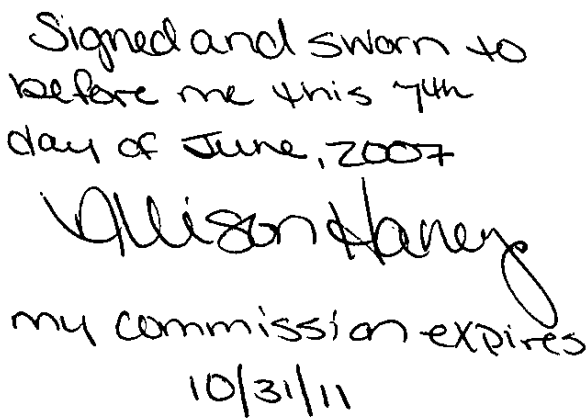 Signed and sworn to
before me this 7th
day of June, 2007
Allison Haney
my commission expires
10/31/11